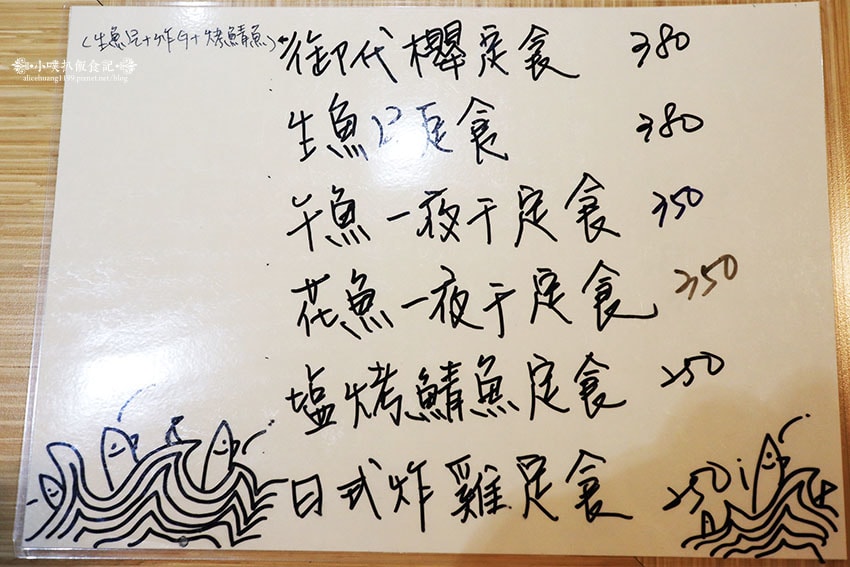 (生魚片+炸白+烤鯖魚)
小噗挑飯食記
alicehuang1199.pixnet.net/blog
御代櫻定食 380
生魚片定食 380
午魚一夜干定食 350
花魚一夜干定食 350
塩烤鯖魚定食 250
日式炸雞定食 250